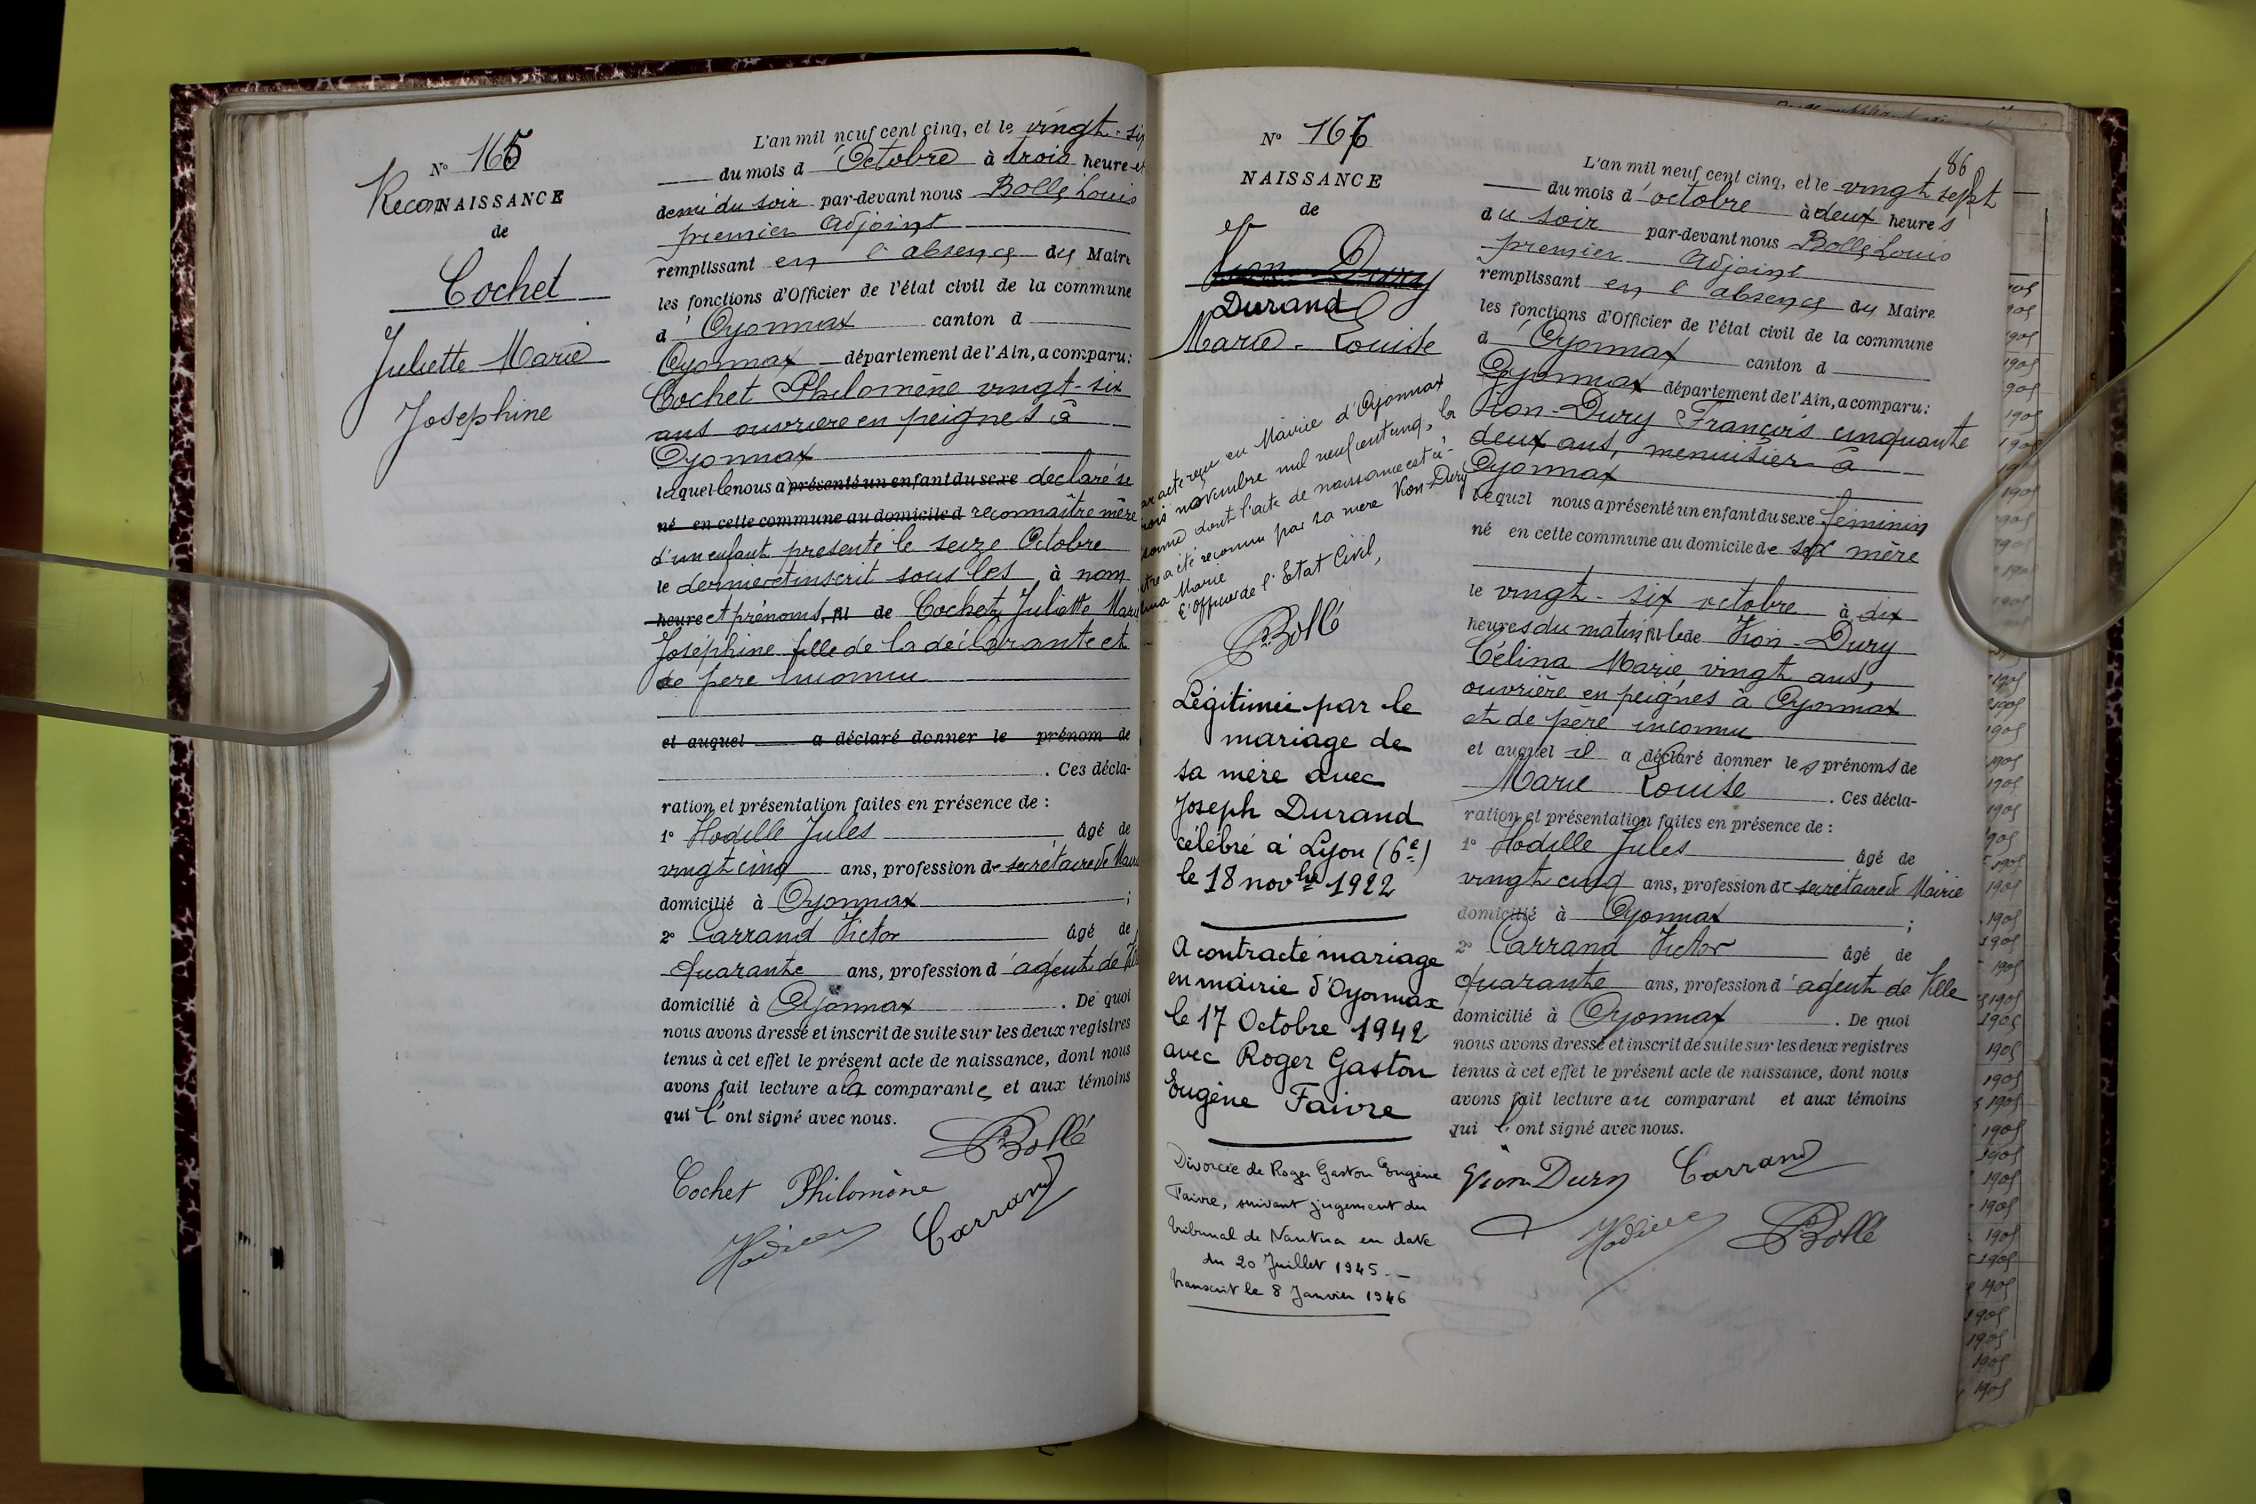 N° 165
ReconNAISSANCE
de
Cochet
Juliette Marie
Josephine
L'an mil neuf cent cinq, et le vingt-six
du mois d'Octobre à trois heure et
demi du soir par-devant nous Bollé Louis
premier Adjoint
remplissant en l'absence du Maire
les fonctions d'Officier de l'état civil de la commune
d'Oyonnax canton d
Oyonnax département de l'Ain, a comparu:
Cochet Philomène vingt-six
ans ouvriere en peignes à
Oyonnax
laquelle nous a présenté un enfant du sexe declaré se
né en cette commune au domicile d reconnaître mère
d'un enfant presenté le seize Octobre
le dernier et inscrit sous les à nom
heure et prénoms, fil de Cochet Juliette Marie
Joséphine fille de la déclarante et
de père inconnu
et auquel a déclaré donner le prénom de
. Ces décla-
ration et présentation faites en présence de :
1° Hodille Jules âgé de
vingt cinq ans, profession de secrétaire de Mairie
domicilié à Oyonnax ;
2° Carrand Victor âgé de
quarante ans, profession d'agent de
domicilié à Oyonnax . De quoi
nous avons dressé et inscrit de suite sur les deux registres
tenus à cet effet le présent acte de naissance, dont nous
avons fait lecture a la comparante et aux témoins
qui l'ont signé avec nous.
Bollé
Cochet Philomène
Carrand
Hodille
86
N° 167
NAISSANCE
de
Durand
Marie-Louise
acte reçu en Mairie d'Oyonnax
novembre mil neuf cent cinq, la
dont l'acte de naissance est ci-
a été reconnu par sa mere Vion-Dury
Marie
L'Officier de l'Etat Civil,
Bollé
Légitimée par le
mariage de
sa mère avec
Joseph Durand
célébré à Lyon (6e)
le 18 novbre 1922
A contracté mariage
en mairie d'Oyonnax
le 17 Octobre 1942
avec Roger Gaston
Eugène Faivre
Divorcée de Roger Gaston Eugène
Faivre, suivant jugement du
tribunal de Nantua en date
du 20 Juillet 1945.-
transcrit le 8 Janvier 1946
L'an mil neuf cent cinq, et le vingt sept
du mois d'octobre à deux heures
du soir par-devant nous Bollé Louis
premier Adjoint
remplissant en l'absence du Maire
les fonctions d'Officier de l'état civil de la commune
d'Oyonnax canton d
Oyonnax département de l'Ain, a comparu:
Vion-Dury François cinquante
deux ans, menuisier à
Oyonnax
lequel nous a présenté un enfant du sexe féminin
né en cette commune au domicile de sa mère
le vingt-six octobre à dix
heures du matin fille de Vion-Dury
Célina Marie, vingt ans,
ouvrière en peignes à Oyonnax
et de père inconnu
et auquel il a déclaré donner les prénoms de
Marie Louise . Ces décla-
ration et présentation faites en présence de :
1° Hodille Jules âgé de
vingt cinq ans, profession de secrétaire de Mairie
domicilié à Oyonnax ;
2° Carrand Victor âgé de
quarante ans, profession d'agent de Ville
domicilié à Oyonnax . De quoi
nous avons dressé et inscrit de suite sur les deux registres
tenus à cet effet le présent acte de naissance, dont nous
avons fait lecture au comparant et aux témoins
qui l'ont signé avec nous.
Vion Dury Carrand
Hodille Bollé